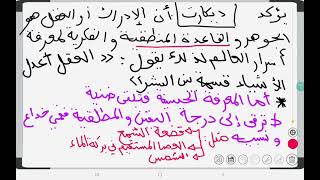 يؤكد ديكارت أن الإدراك أو العقل هو
الجوهر والقاعدة المنطقية والفكرية لمعرفة
أسرار العالم لذلك يقول: "العقل أعدل
الأشياء قسمة بين البشر"
* أما المعرفة الحسية فتبقى
ترقى إلى درجة اليقين والمطلقية فهي خداع
ونسبية مثل: قطعة الشمع
العصا المستقيم في بركة الماء
الشمس